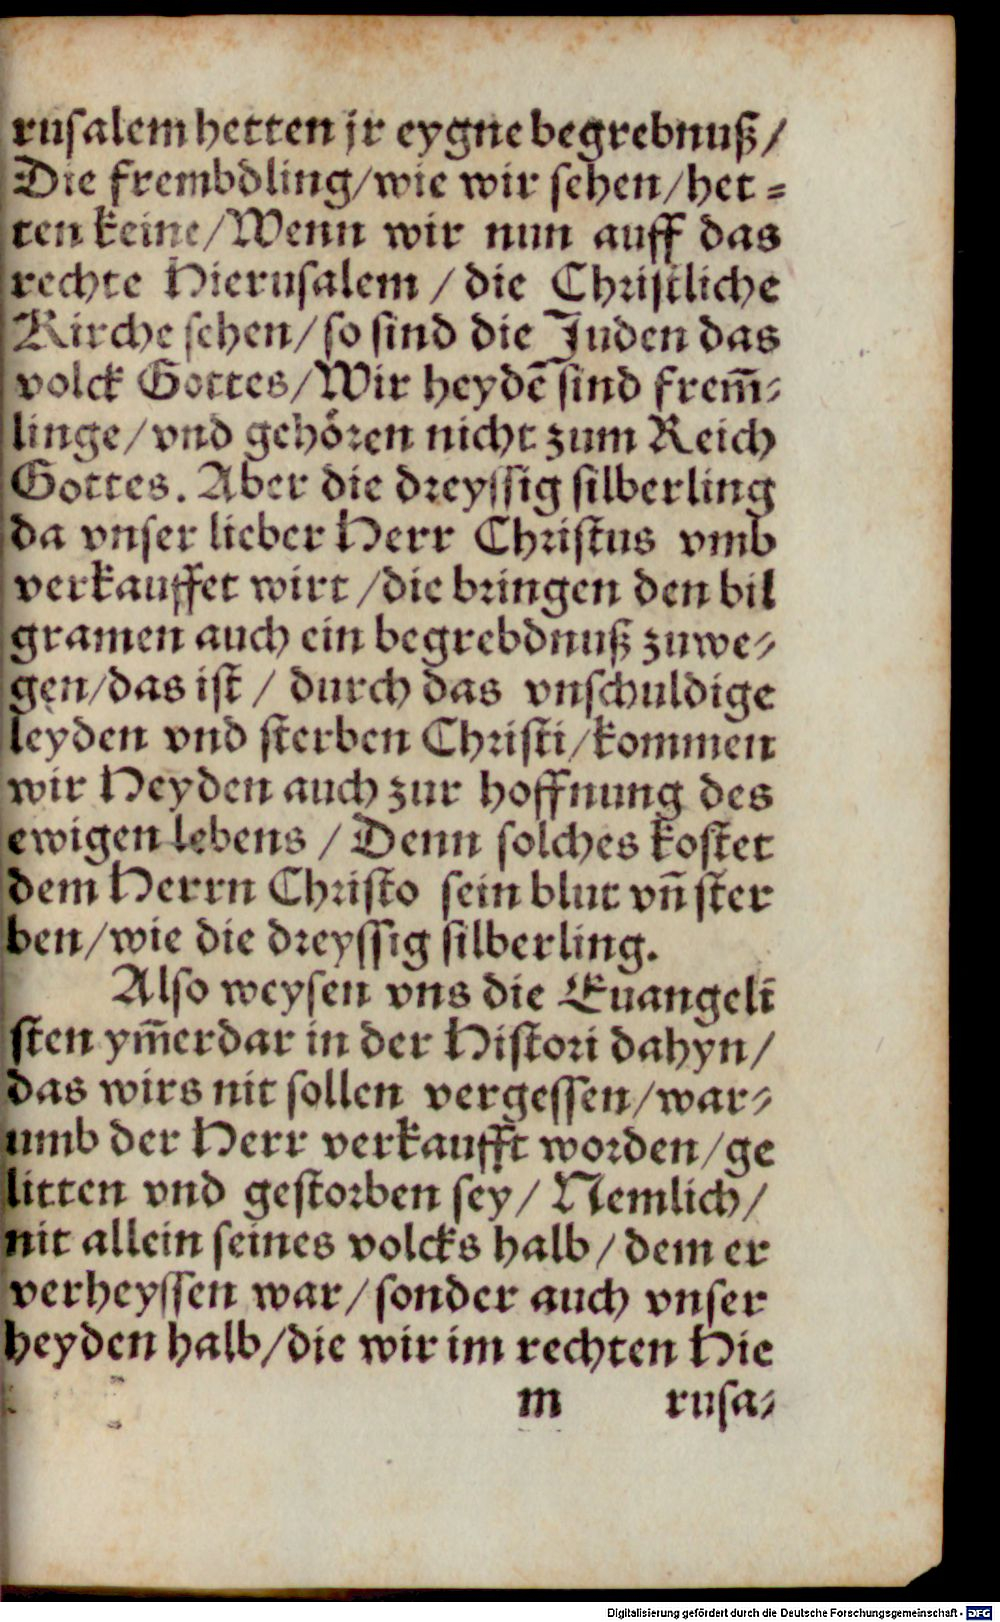 rusalem hetten jr eygne begrebnuß/
Die frembdling/wie wir sehen/het-
ten keine/Wenn wir nun auff das
rechte Hierusalem / die Christliche
Kirche sehen/so sind die Juden das
volck Gottes/Wir heydē sind frem̄-
linge/vnd gehören nicht zum Reich
Gottes. Aber die dreyssig silberling
da vnser lieber Herr Christus vmb
verkauffet wirt /die bringen den bil
gramen auch ein begrebdnuß zuwe-
gen/das ist / durch das vnschuldige
leyden vnd sterben Christi/kommen
wir Heyden auch zur hoffnung des
ewigen lebens / Denn solches kostet
dem Herrn Christo sein blut vn̄ ster
ben/wie die dreyssig silberling.
Also weysen vns die Euangeli
sten ym̄erdar in der Histori dahyn/
das wirs nit sollen vergessen/war-
umb der Herr verkaufft worden/ge
litten vnd gestorben sey/ Nemlich/
nit allein seines volcks halb/dem er
verheyssen war/sonder auch vnser
heyden halb/die wir im rechten Hie
m rusa-
Digitalisierung gefördert durch die Deutsche Forschungsgemeinschaft - DFG